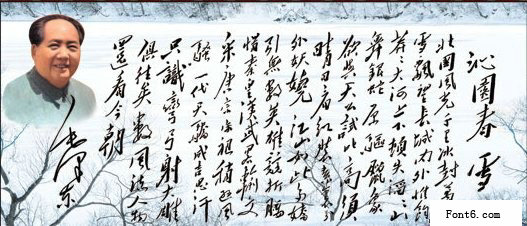 沁園春 雪
北國風光千里冰封萬里
雪飄望長城内外惟餘
莽莽大河上下頓失滔滔山
舞銀蛇原驅臘象
欲與天公試比高須
晴日看紅裝素裹分
外妖嬈江山如此多嬌
引無數英雄競折腰
惜秦皇漢武略輸文
采唐宗宋祖稍遜風
騷一代天驕成吉思汗
只識彎弓射大雕
俱往矣數風流人物
還看今朝
毛澤東
Font6.com